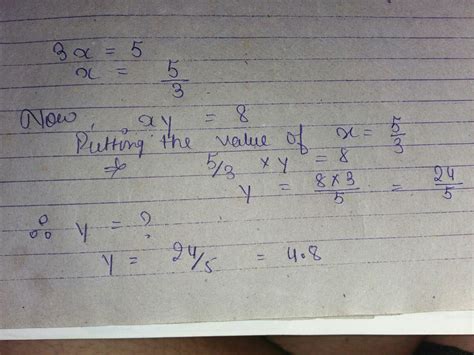 3x = 5
x = 5/3
Now, xy = 8
Putting the value of x = 5/3
5/3 × y = 8
y = 8×3/5 = 24/5
∴ y = ?
y = 24/5 = 4.8